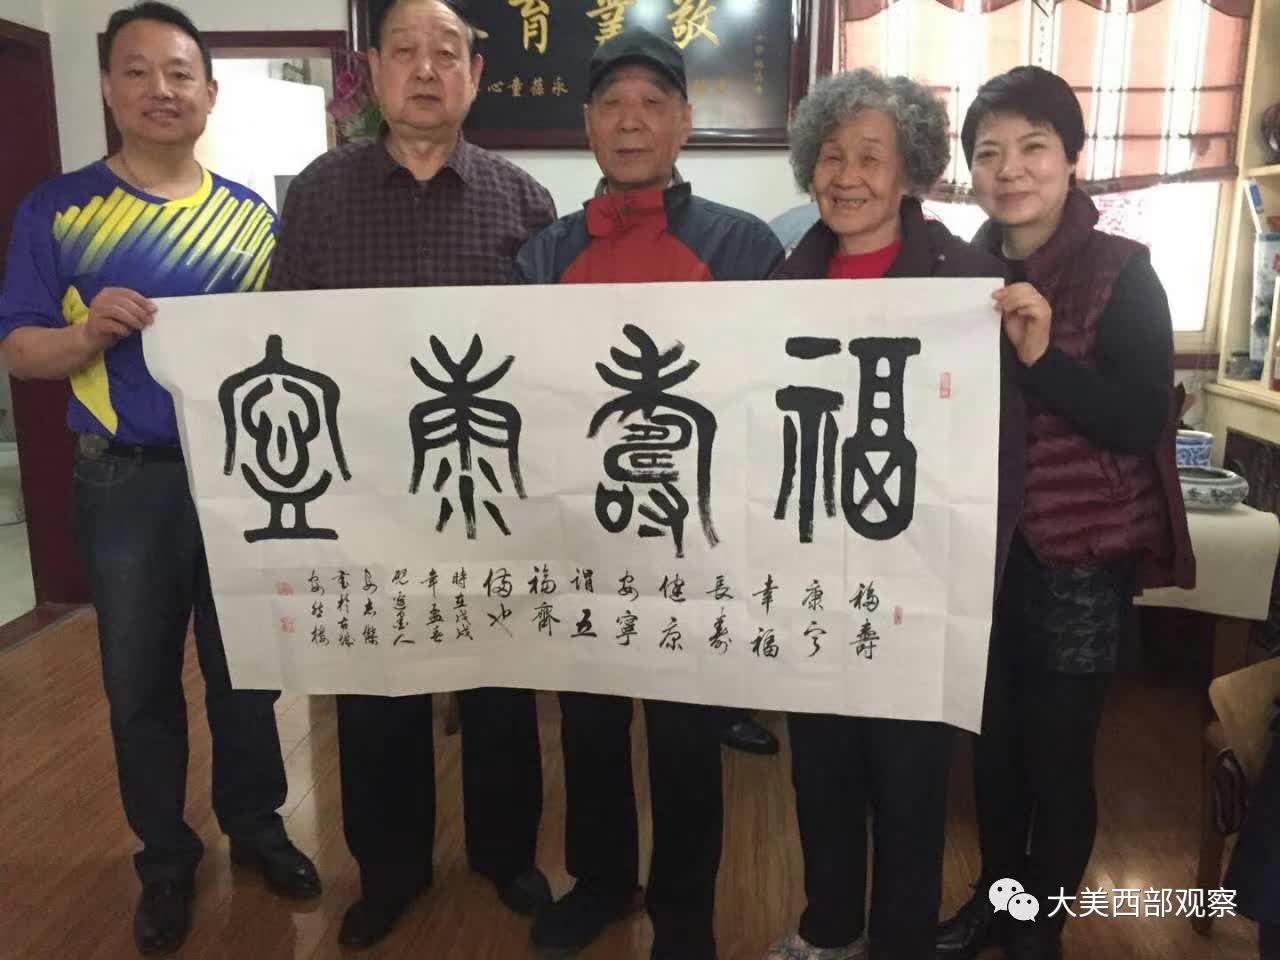 敬業育
永葆童心
福壽康寧
福壽
康寧
幸福
長壽
健康
安寧
謂五
福齊
備也
時在戊戌
年孟春
书於古城
大美西部观察